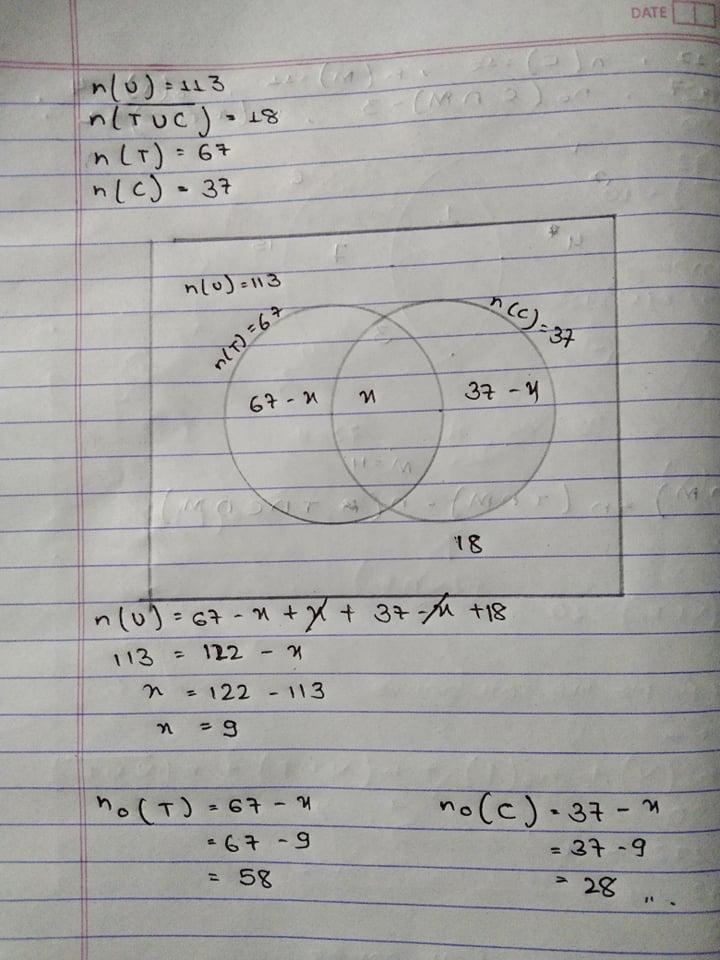 DATE
n(U) = 113
n(T ∪ C) = 18
n(T) = 67
n(C) = 37
n(U) = 113
n(T) = 67
n(C) = 37
67 - x
x
37 - x
18
n(U) = 67 - x + x + 37 - x + 18
113 = 122 - x
x = 122 - 113
x = 9
no(T) = 67 - x
= 67 - 9
= 58
no(C) = 37 - x
= 37 - 9
= 28